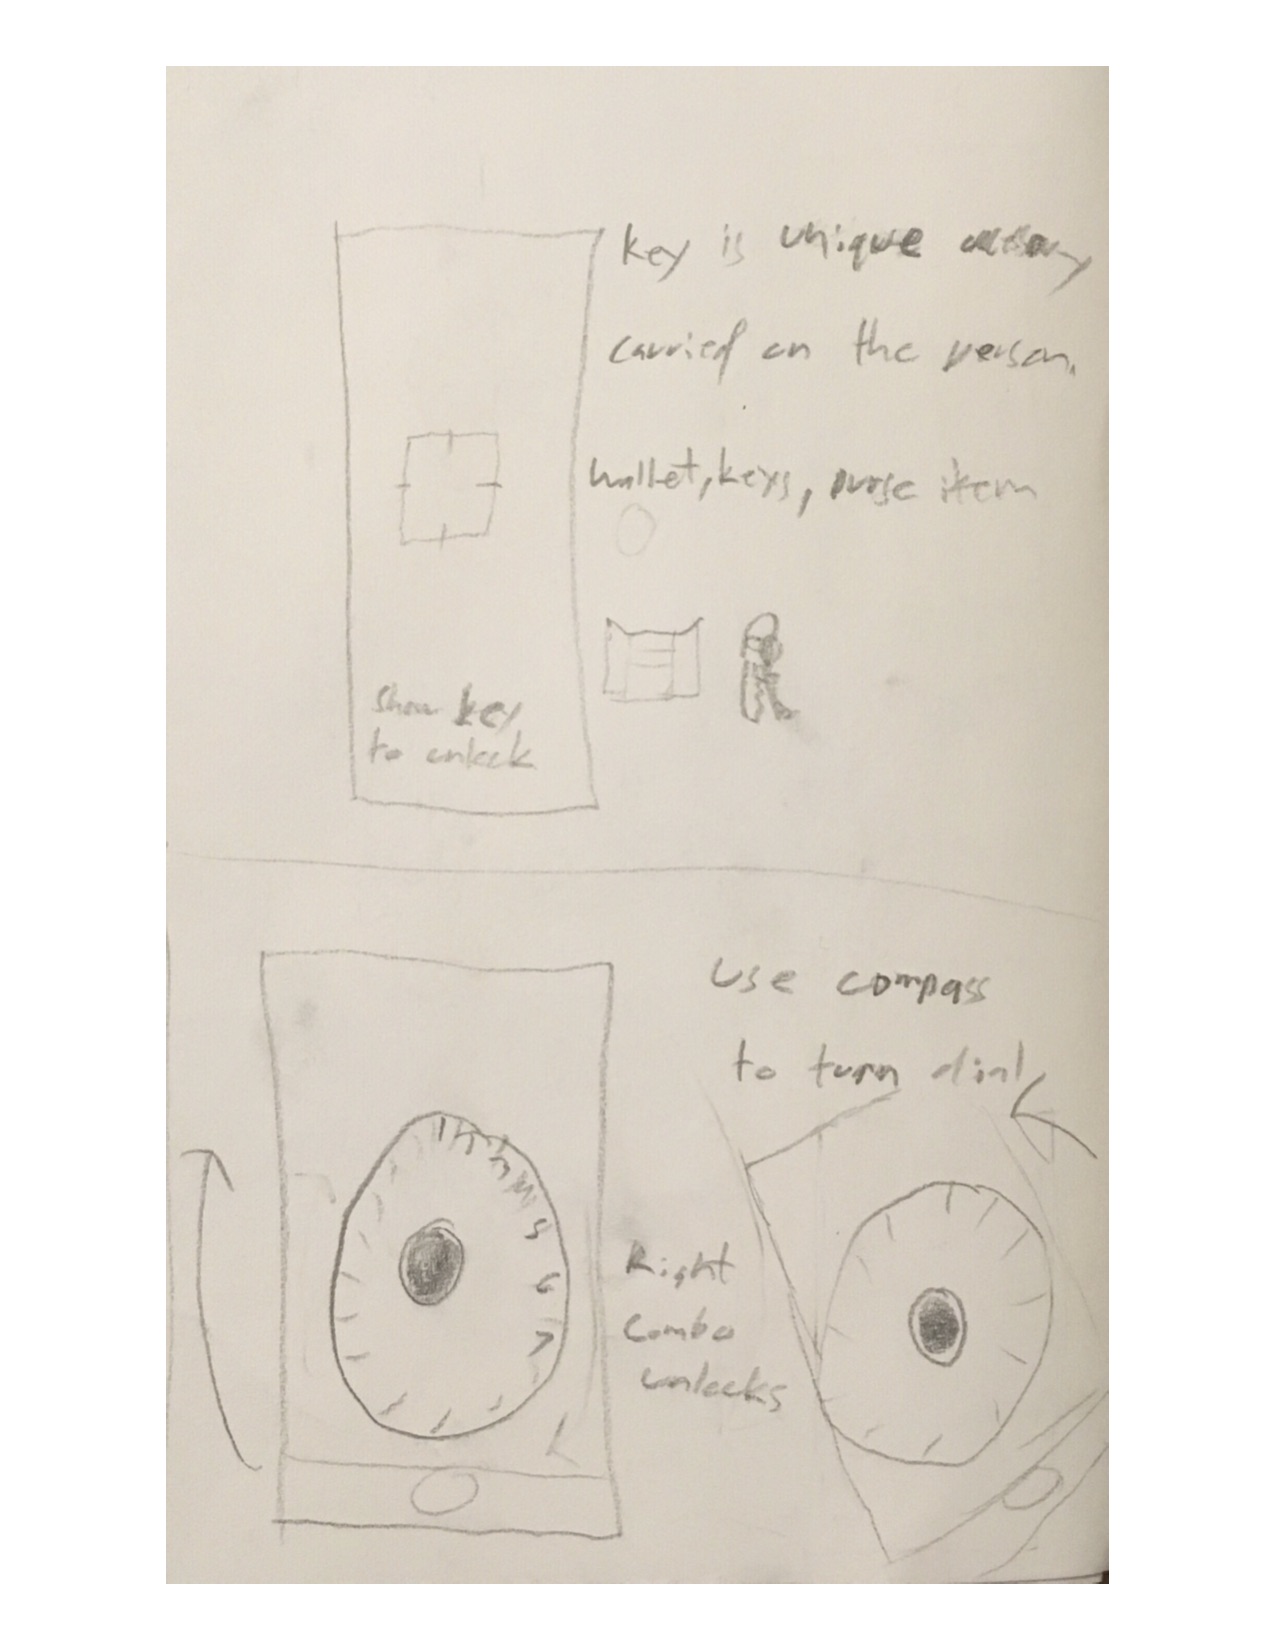 key is unique
carried on the person.
wallet, keys, purse item
show key
to unlock
use compass
to turn dial
5
6
7
Right
combo
unlocks